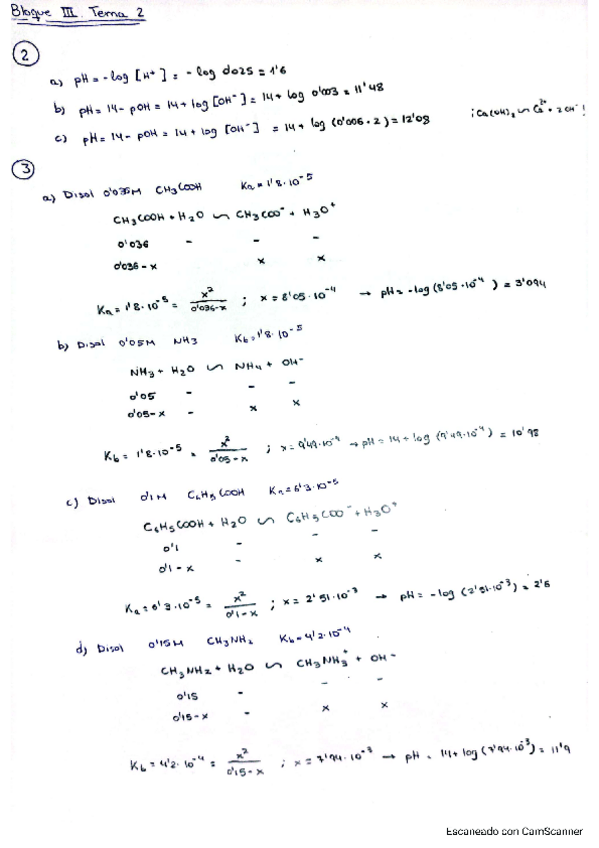 Bloque III. Tema 2
2
a) pH = -log [H⁺] = -log 0'025 = 1'6
b) pH = 14 - pOH = 14 + log [OH⁻] = 14 + log 0'003 = 11'48
c) pH = 14 - pOH = 14 + log [OH⁻] = 14 + log (0'006 · 2) = 12'08 ¡Ca(OH)₂ ⇆ Ca²⁺ + 2OH⁻!
3
a) Disol 0'036M CH₃COOH Ka = 1'8·10⁻⁵
CH₃COOH + H₂O ⇆ CH₃COO⁻ + H₃O⁺
0'036 - - -
0'036-x x x
Ka = 1'8·10⁻⁵ = x²/0'036-x ; x = 8'05·10⁻⁴ → pH = -log (8'05·10⁻⁴) = 3'094
b) Disol 0'05M NH3 Kb = 1'8·10⁻⁵
NH₃ + H₂O ⇆ NH₄ + OH⁻
0'05 - - -
0'05-x - x x
Kb = 1'8·10⁻⁵ = x²/0'05-x ; x = 9'49·10⁻⁴ → pH = 14 + log (9'49·10⁻⁴) = 10'98
c) Disol 0'1M C₆H₅COOH Ka = 6'3·10⁻⁵
C₆H₅COOH + H₂O ⇆ C₆H₅COO⁻ + H₃O⁺
0'1 - - -
0'1-x - x x
Ka = 6'3·10⁻⁵ = x²/0'1-x ; x = 2'51·10⁻³ → pH = -log (2'51·10⁻³) = 2'6
d) Disol 0'15M CH₃NH₂ Kb = 4'2·10⁻⁴
CH₃NH₂ + H₂O ⇆ CH₃NH₃⁺ + OH⁻
0'15 - - -
0'15-x - x x
Kb = 4'2·10⁻⁴ = x²/0'15-x ; x = 7'94·10⁻³ → pH = 14 + log (7'94·10⁻³) = 11'9
Escaneado con CamScanner